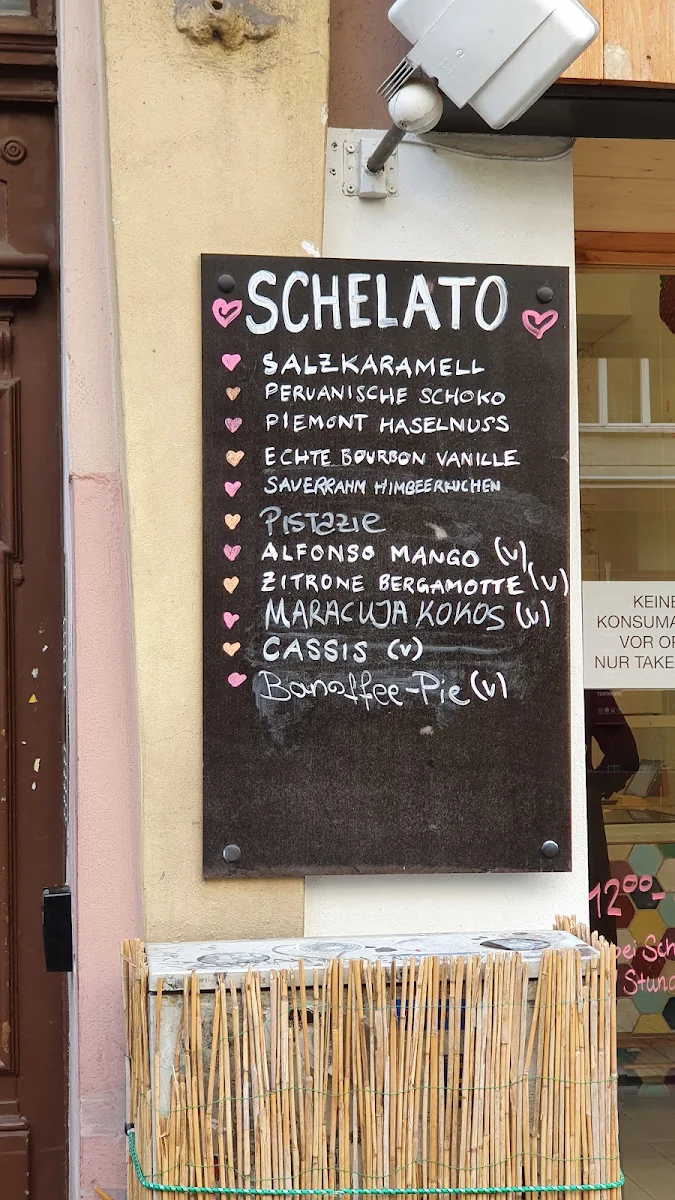 SCHELATO
SALZKARAMELL
PERUANISCHE SCHOKO
PIEMONT HASELNUSS
ECHTE BOURBON VANILLE
SAUERRAHM HIMBEERKUCHEN
PISTAZIE
ALFONSO MANGO (V)
ZITRONE BERGAMOTTE (V)
MARACUJA KOKOS (V)
CASSIS (V)
Banoffee-Pie (V)
KEINE
KONSUMA
VOR OR
NUR TAKE
12°°-
bei Sch
Stund